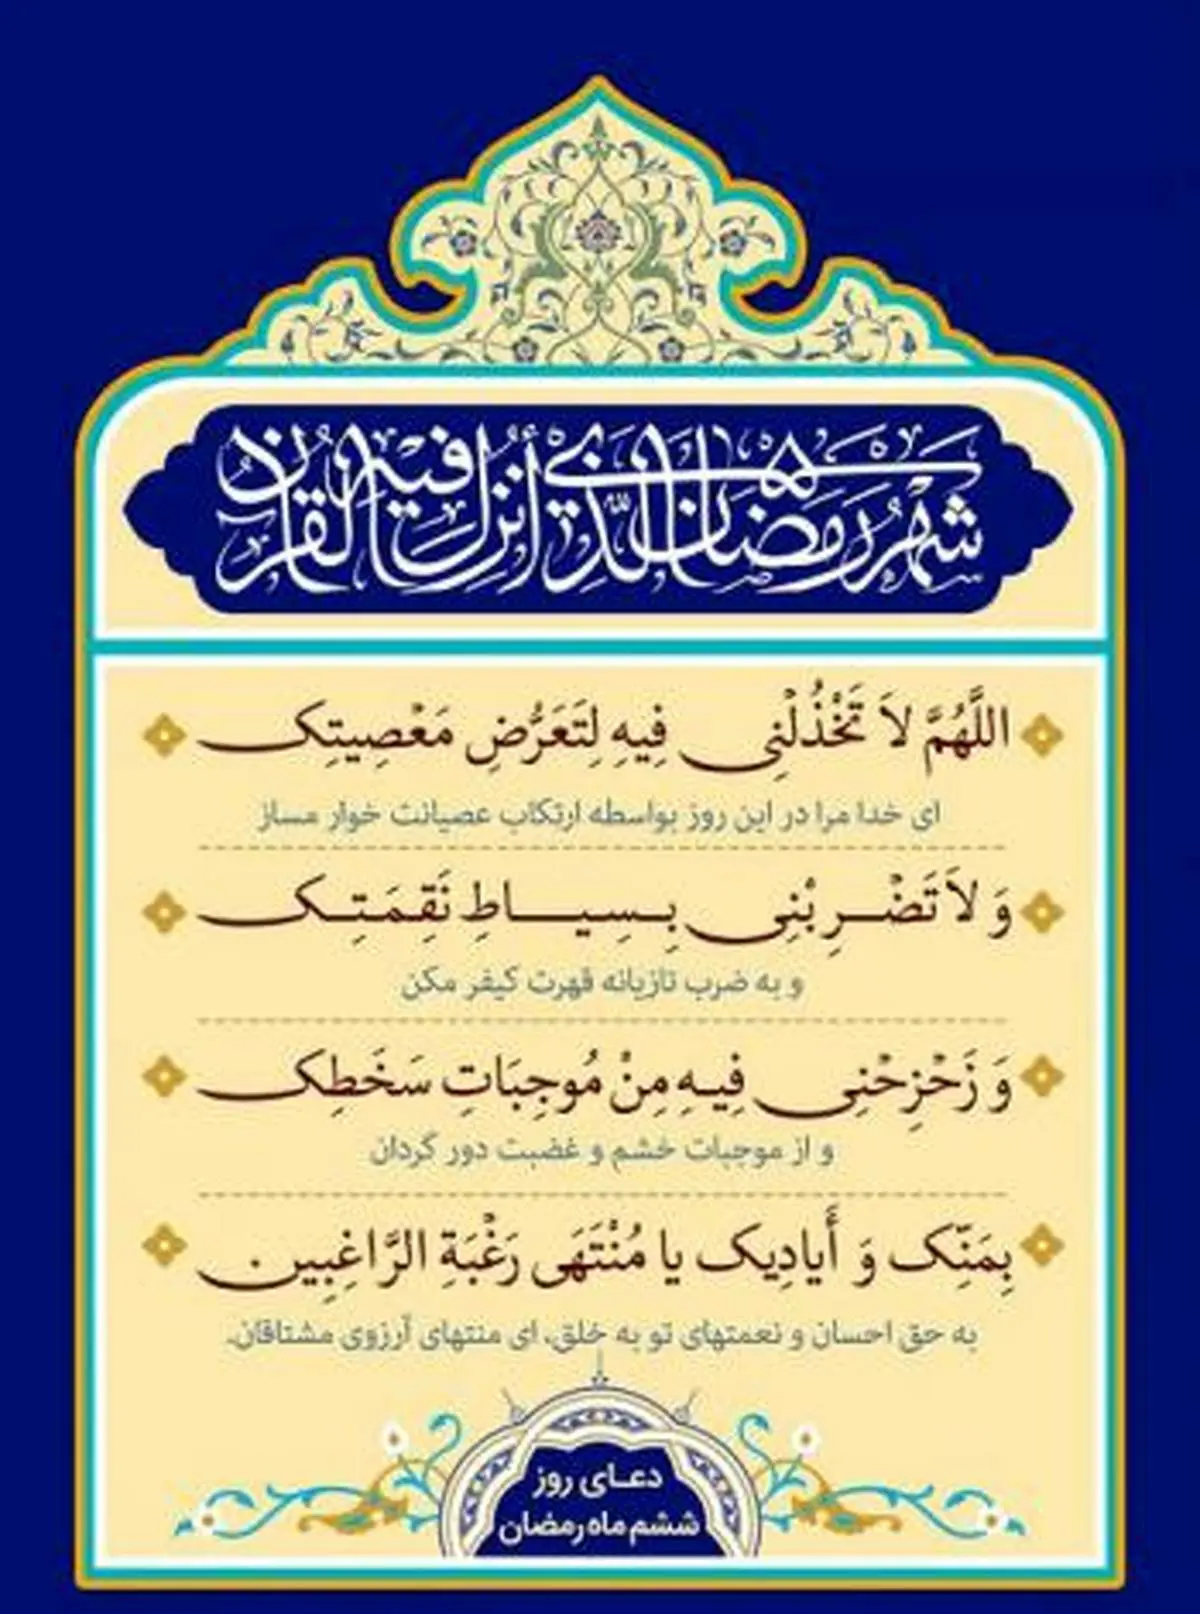 شهر رمضان الذی أنزل فیه القرآن
اللَّهُمَّ لاَ تَخْذُلْنِی فِیهِ لِتَعَرُّضِ مَعْصِیتِک
ای خدا مرا در این روز بواسطه ارتکاب عصیانت خوار مساز
وَ لاَ تَضْرِبْنِی بِسِیاطِ نَقِمَتِک
و به ضرب تازیانه قهرت کیفر مکن
وَ زَحْزِحْنِی فِیهِ مِنْ مُوجِبَاتِ سَخَطِک
و از موجبات خشم و غضبت دور گردان
بِمَنِّک وَ أَیادِیک یا مُنْتَهَی رَغْبَةِ الرَّاغِبِین.
به حق احسان و نعمتهای تو به خلق، ای منتهای آرزوی مشتاقان.
دعای روز
ششم ماه رمضان